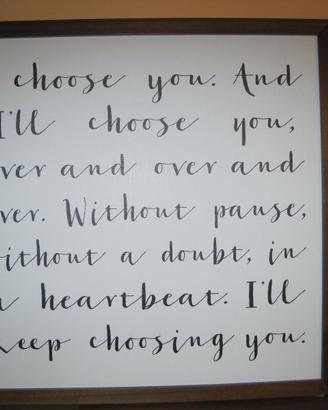 choose you. And
I'll choose you,
ver and over and
ver. Without pause,
ithout a doubt, in
a heartbeat. I'll
keep choosing you.